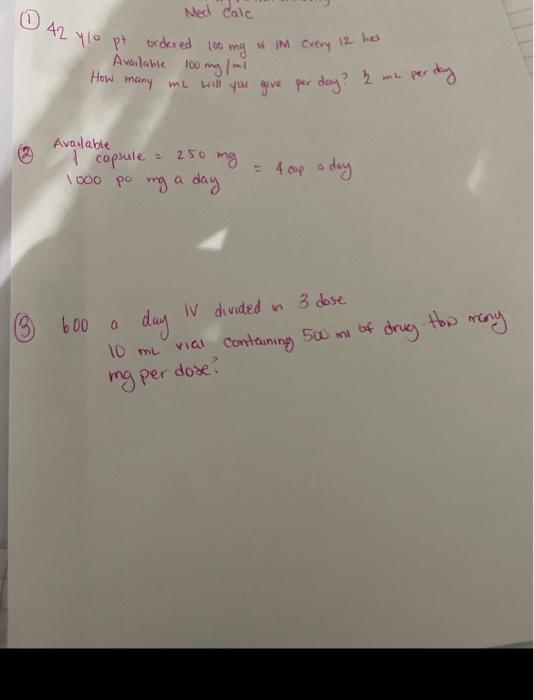 Med Calc
① 42 y/o pt ordered 100 mg of IM every 12 hrs
Available 100 mg/ml
How many mL will you give per day? 2 mL per day
② Available
1 capsule = 250 mg
1000 po mg a day = 4 cap a day
③ 600 a day IV divided in 3 dose
10 mL vial containing 500 ml of drug. How many
mg per dose?